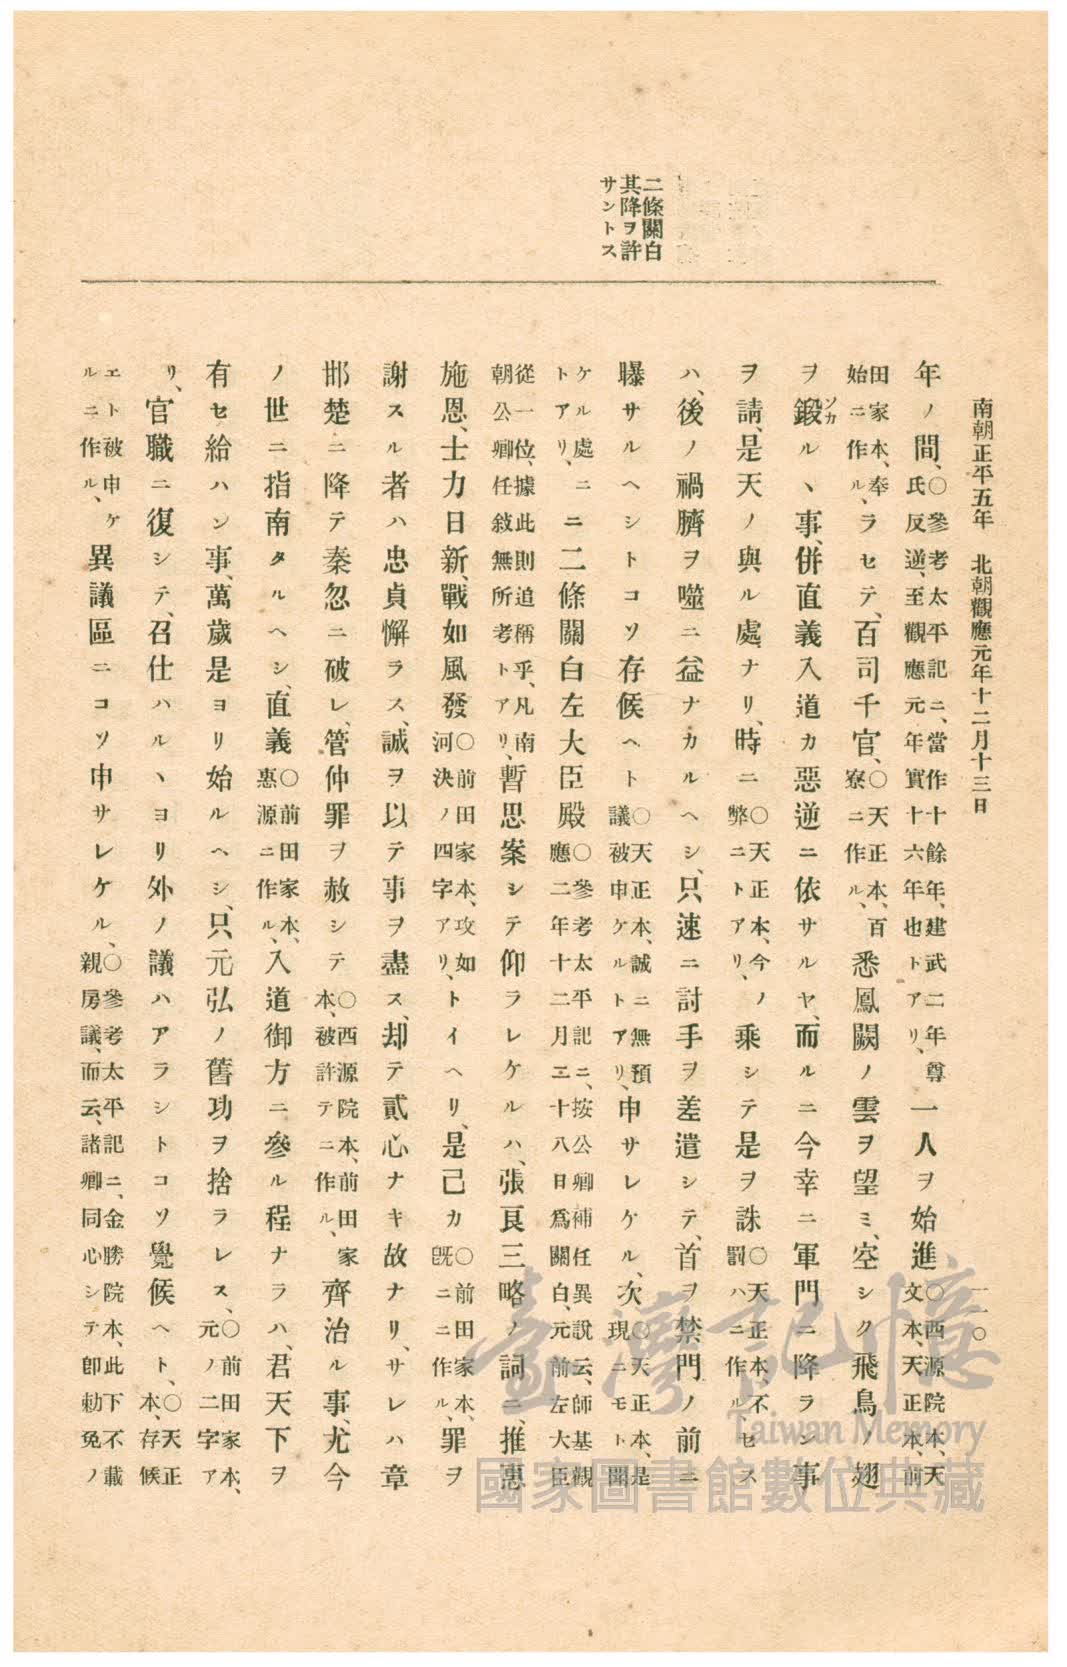 南朝正平五年　北朝觀應元年十二月十三日
一一〇
二條關白
其降ヲ許
サントス
年ノ間、〇參考太平記ニ、當作十餘年、建武二年尊氏反逆、至觀應元年實十六年也トアリ、一人ヲ始進〇西源院本、天文本、天正本、前
田家本、奉始ニ作ル、ラセテ、百司千官、〇天正本、百寮ニ作ル、悉鳳闕ノ雲ヲ望ミ、空シク飛鳥ノ翅
ヲ鍛ソカルヽ事、併直義入道カ惡逆ニ依サルヤ、而ルニ今幸ニ軍門ニ降ラン事
ヲ請、是天ノ與ル處ナリ、時ニ〇天正本、今弊ニトアリ、ノ乘シテ是ヲ誅〇天正本、不罰ハニ作ル、セス
ハ、後ノ禍臍ヲ噬ニ益ナカルヘシ、只速ニ討手ヲ差遣シテ、首ヲ禁門ノ前ニ
曝サルヘシトコソ存候ヘト〇天正本、誠ニ無預議被申ケルトアリ、申サレケル、次〇天正本、是現ニモト聞
ケル處ニトアリ、ニ二條關白左大臣殿〇參考太平記ニ、按公卿補任異說云、師基觀應二年十二月二十八日爲關白、元前左大臣
從一位、據此則追稱乎、凡南朝公卿任敍無所考トアリ、暫思案シテ仰ラレケルハ、張良三略ノ詞ニ、推惠
施恩、士力日新、戰如風發〇前田家本、攻如河決ノ四字アリ、トイヘリ、是己カ〇前田家本、旣ニニ作ル、罪ヲ
謝スル者ハ忠貞懈ラス、誠ヲ以テ事ヲ盡ス、却テ貳心ナキ故ナリ、サレハ章
邯楚ニ降テ秦忽ニ破レ、管仲罪ヲ赦シテ〇西源院本、前田家本、被許テニ作ル、齊治ル事、尤今
ノ世ニ指南タルヘシ、直義〇前田家本、惠源ニ作ル、入道御方ニ參ル程ナラハ、君天下ヲ
有セ給ハン事、萬歲是ヨリ始ルヘシ、只元弘ノ舊功ヲ捨ラレス、〇前田家本、元ノ二字ア
リ、官職ニ復シテ、召仕ハルヽヨリ外ノ議ハアラシトコソ覺候ヘト、〇天正本、存候
エト被申ケルニ作ル、異議區ニコソ申サレケル、〇參考太平記ニ、金勝院本、此下不載親房議、而云、諸卿同心シテ卽勅免ノ
臺灣記憶
Taiwan Memory
國家圖書館數位典藏